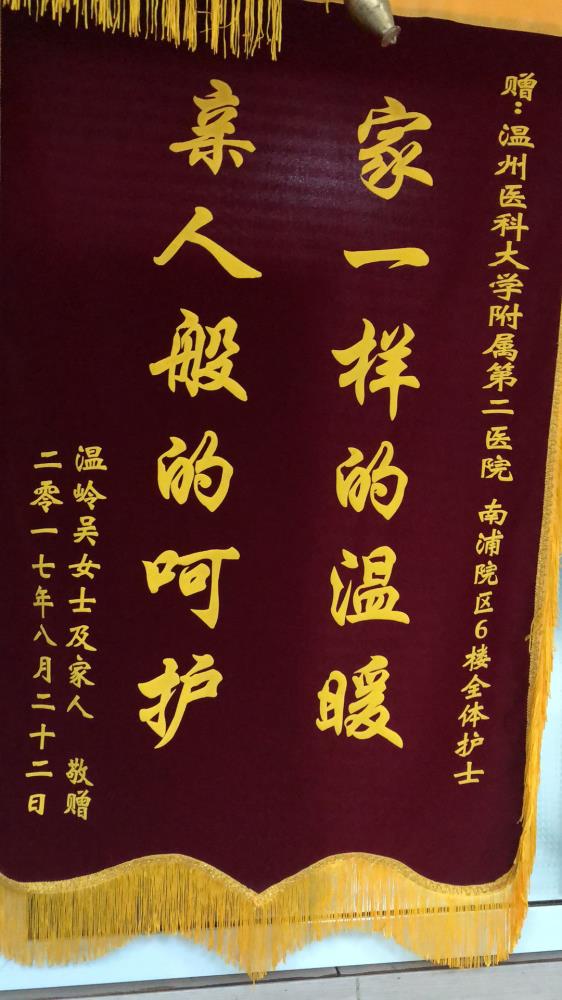 赠：温州医科大学附属第二医院 南浦院区6楼全体护士
家一样的温暖
亲人般的呵护
温岭吴女士及家人 敬赠
二零一七年八月二十二日